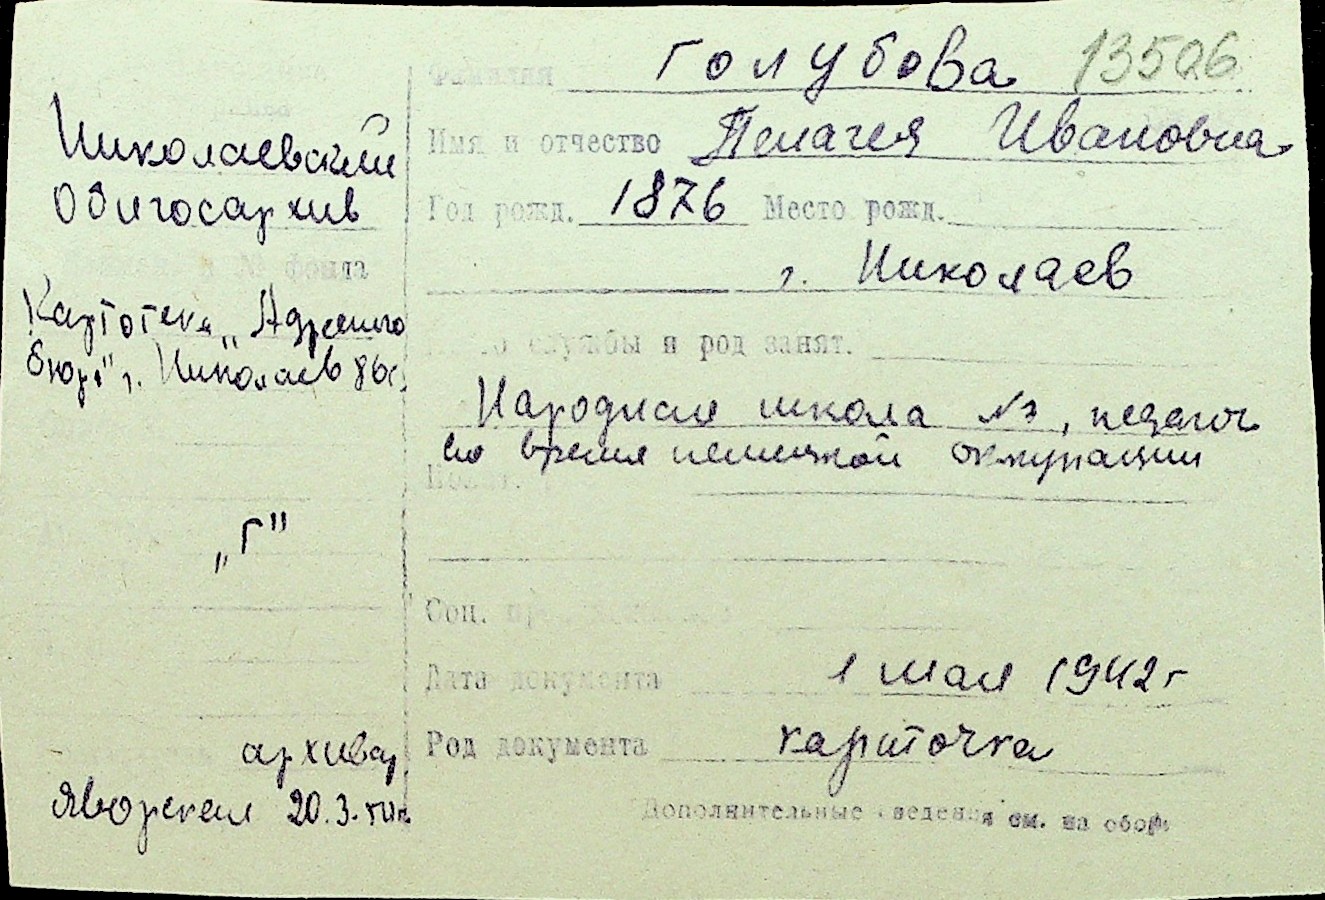 Николаевский
Облгосархив
№ фонда
Картотека „Адресного
бюро" г. Николаев
„Г"
архивар
Яворская 20.3.
Фамилия Голубова 13506
Имя и отчество Пелагея Ивановна
Год рожд. 1876 Место рожд.
г. Николаев
службы и род занят.
Народная школа №, педагог
во время немецкой оккупации
Соц.
Дата документа 1 мая 1942 г
Род документа карточка
Дополнительные сведения см. на обор.